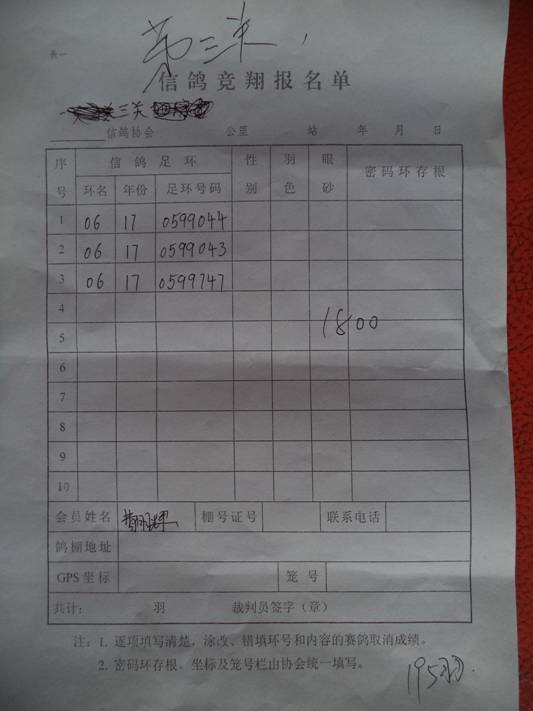 表一
第三
信鸽竞翔报名单
三关
信鸽协会 公里 站 年 月 日
序号 信鸽足环 性别 羽色 眼砂 密码环存根
环名 年份 足环号码
1 06 17 0599044
2 06 17 0599043
3 06 17 0599747
4
1800
5
6
7
8
9
10
会员姓名 棚号证号 联系电话
鸽棚地址
GPS坐标 笼号
共计: 羽 裁判员签字（章）
注：1. 逐项填写清楚，涂改、错填环号和内容的赛鸽取消成绩。
2. 密码环存根、坐标及笼号栏由协会统一填写。
195羽.